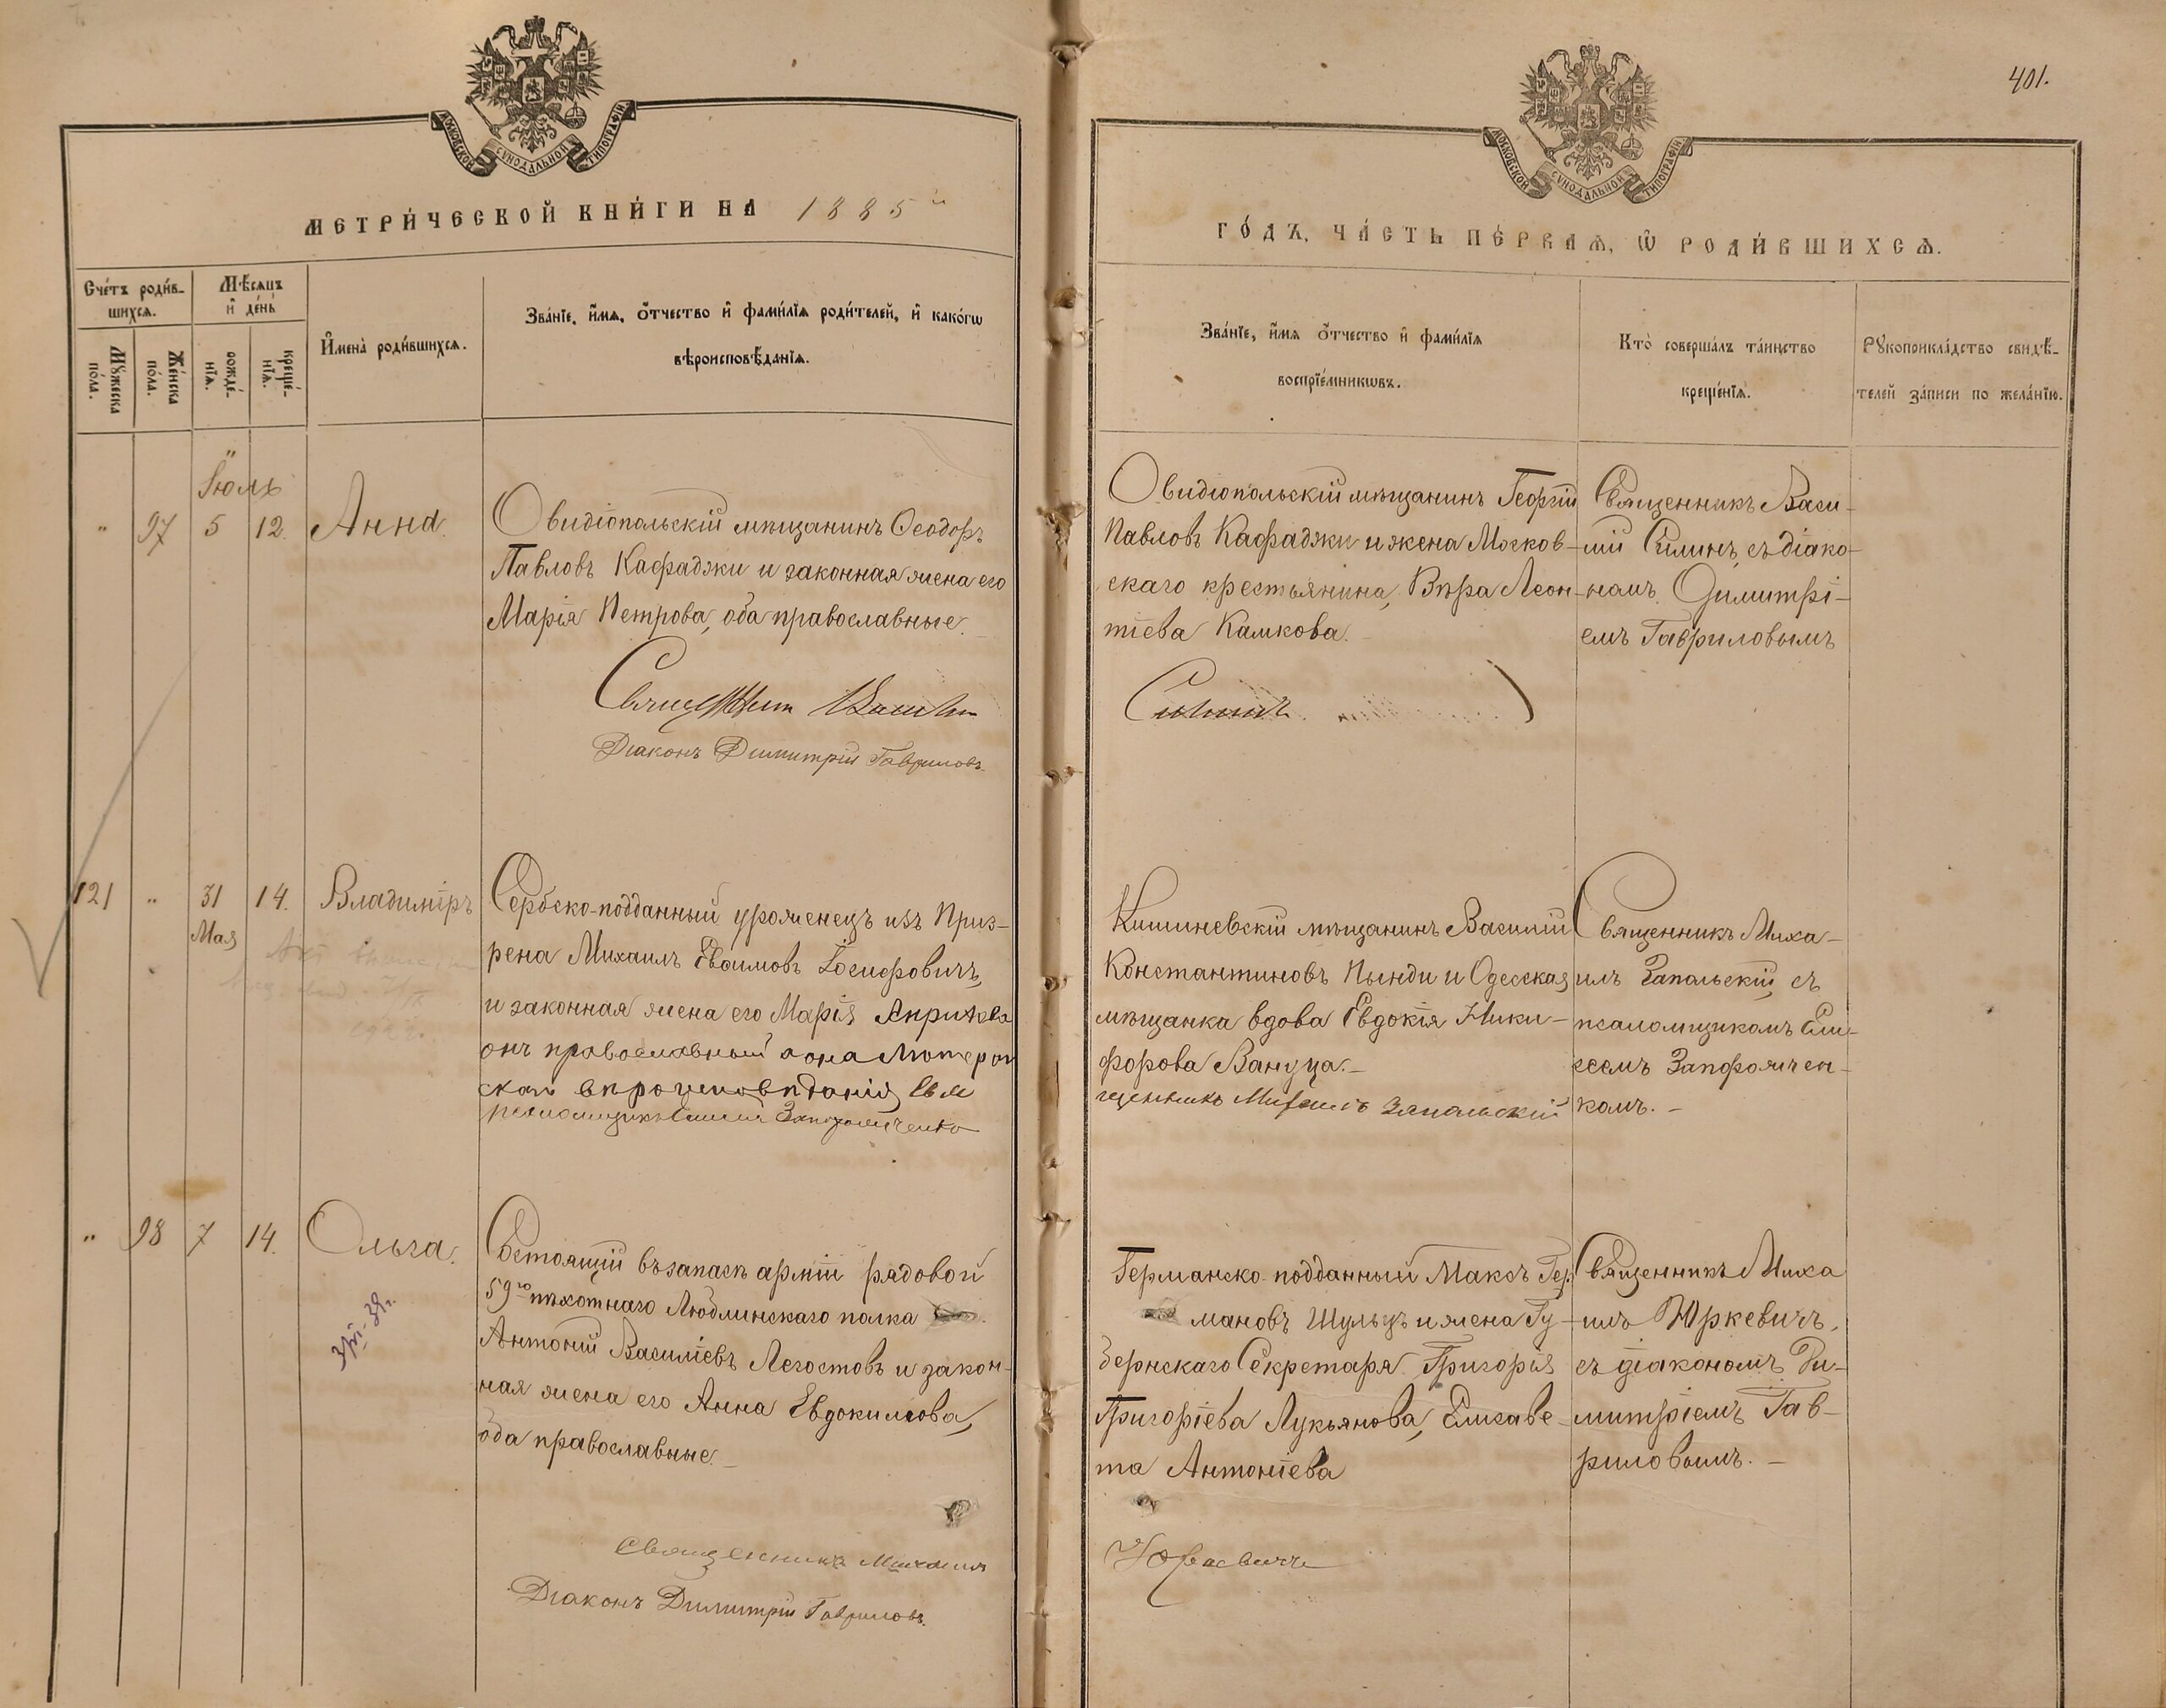 401.
МОСКОВСКОЙ СУНОДАЛЬНОЙ ТИПОГРАФІИ
МОСКОВСКОЙ СУНОДАЛЬНОЙ ТИПОГРАФІИ
МЕТРИ́ЧЕСКОЙ КНИ́ГИ НА 1885й
ГО́ДЪ, ЧА́СТЬ ПЕ́РВАѦ, Ѡ РОДИ́ВШИХСѦ.
Сче́тъ роди́в-
шихсѧ.
Мꙋжеска
по́ла.
Же́нска
по́ла.
Мѣ́сѧцъ
и҆ де́нь
рожде́-
нїѧ.
креще́-
нїѧ.
И҆мена̀ роди́вшихсѧ.
Зва́нїе, и҆́мѧ, ѻ҆́тчество и҆ фами́лїѧ роди́телей, и҆ како́гѡ
вѣроисповѣ́данїѧ.
Зва́нїе, и҆́мѧ ѻ҆́тчество и҆ фами́лїѧ
воспрїе́мникѡвъ.
Кто̀ соверша́лъ та́инство
креще́нїѧ.
Рꙋкоприкла́дство свидѣ́-
телей за́писи по жела́нїю.
Іюль
" 97 5 12. Анна.
Овидіопольскій мѣщанинъ Ѳеодоръ
Павловъ Кафаджи и законная жена его
Марія Петрова, оба православные.
Священникъ Василій
Діаконъ Димитрій Гавриловъ
Овидіопольскій мѣщанинъ Георгій
Павловъ Кафаджи и жена Москов-
скаго крестьянина, Вѣра Леон-
тіева Камкова.
Силинъ
Священникъ Васи-
лій Силинъ, съ діако-
номъ Димитрі-
емъ Гавриловымъ
121 " 31 14. Владиміръ
Мая
Сербско-подданный уроженецъ изъ Приз-
рена Михаилъ Евѳимовъ Іосифовичъ,
и законная жена его Марія
онъ православный а она Лютеран
скаго вѣроисповѣданія
псаломщикъ Елисей Запорожченко
Кишиневскій мѣщанинъ Василій
Константиновъ Пынди и Одесская
мѣщанка вдова Евдокія Ники-
форова Вануца.-
Михаилъ Запольскій
Священникъ Миха-
илъ Запольскій, съ
псаломщикомъ Ели-
сеемъ Запорожчен-
комъ.-
" 98 7 14. Ольга.
Состоящій въ запасѣ арміи рядовой
59го пѣхотнаго Люблинскаго полка
Антоній Василіевъ Легостовъ и закон-
ная жена его Анна Евдокимова,
оба православные.-
Священникъ Михаилъ
Діаконъ Димитрій Гавриловъ.
Германско-подданный Максъ Гер
мановъ Шульцъ и жена Гу-
бернскаго Секретаря Григорія
Григоріева Лукьянова, Елизаве-
та Антоніева
Юркевичъ
Священникъ Миха
илъ Юркевичъ,
съ діакономъ Ди-
митріемъ Гав-
риловымъ.-